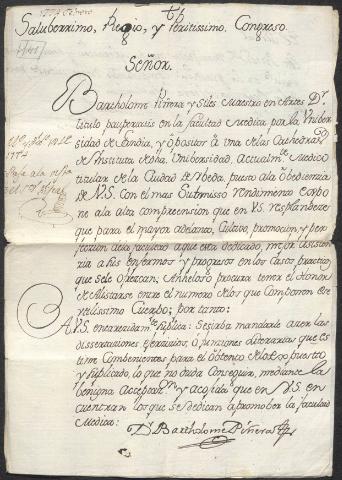 1774 Febrero
Saluberrimo, Regio, y Peritissimo. Congreso.
Señor.
Bartholome Piñera y Siles Maestro en Artes Dr.
titulo pauperis en la facultad Medica por la Univer
sidad de Gandia, y opositor a una de las Cathedras
de Instituta de dha. Universidad, Actualmte. Medico
titular de la Ciudad de Ubeda, puesto a la obediencia
de V.S. con el mas submisso rendimento expo
ne a la alta comprension que en V.S. resplandeze
que para el mayor adelanto, Cultivo, promocion, y per
feccion de la facultad a que esta dedicado, mejor asisten
cia a sus enfermos y progresos en los Casos practicos
que se le ofrezcan; Anheloso procura tener el Honor
de Alistarse entre el numero de los que Componen este
utilissimo Cuerpo; por tanto:
A V.S. su suplica: se sirba mandarle a
dissertationes exercicios, o funciones Literarias que es
time Combenientes para el obtenco de lo expuesto
y suplicado, lo que no duda Conseguir, mediante la
benigna Aceptacon. y acogida que en V.S. en
cuentran los que se dedican a promober la facultad
Medica:
Dr. Bartholome Piñera
1774
Pase a la